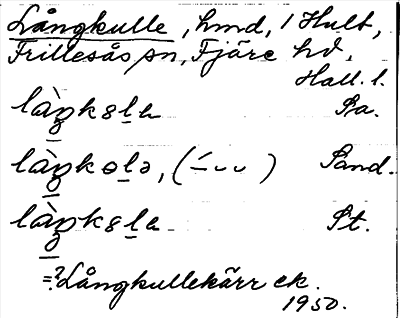 Långkulle, hmd, 1 Hult,
Frillesås sn, Fjäre hd,
Hall. l.
Sa.
Sand.
St.
=? Långkullekärr ek.
1950.